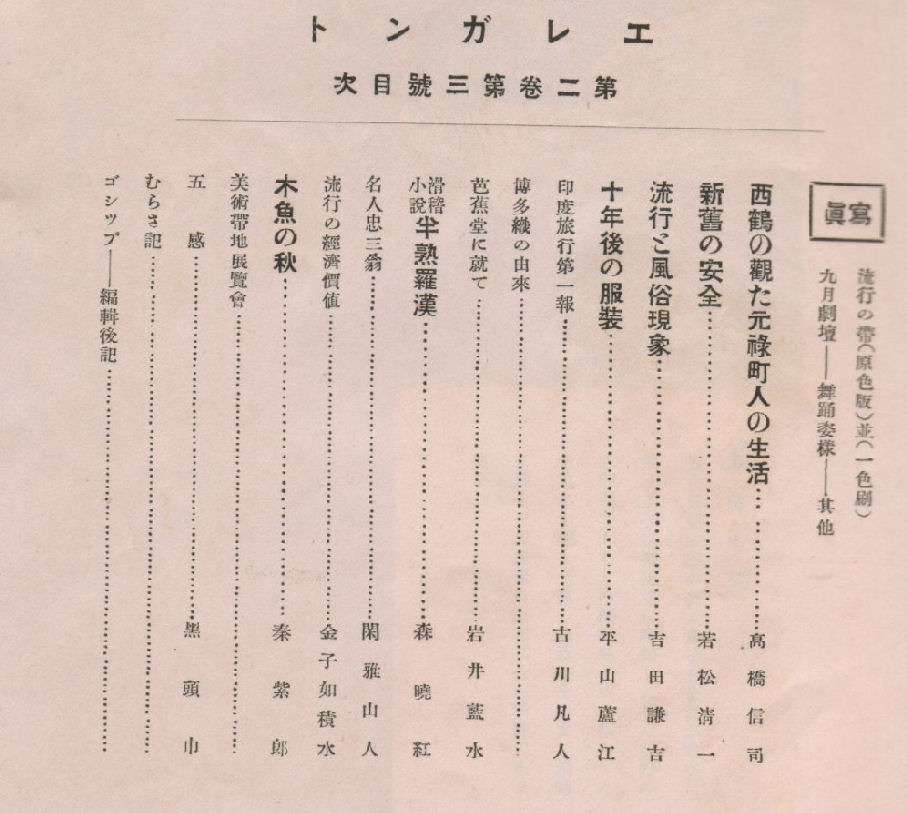 エレガント
第二卷第三號目次
寫眞
流行の帶(原色版)並(一色刷)
九月劇壇——舞踊姿樣——其他
西鶴の觀た元祿町人の生活……………高橋信司
新舊の安全……………若松淸一
流行と風俗現象……………吉田謙吉
十年後の服裝……………平山蘆江
印度旅行第一報……………古川凡人
博多織の由來……………
芭蕉堂に就て……………岩井藍水
滑稽小說 半熟羅漢……………森曉紅
名人忠三翁……………閑雅山人
流行の經濟價値……………金子如積水
木魚の秋……………秦紫郎
美術帶地展覽會……………
五感……………黑頭巾
むらさ記……………
ゴシツプ——編輯後記……………